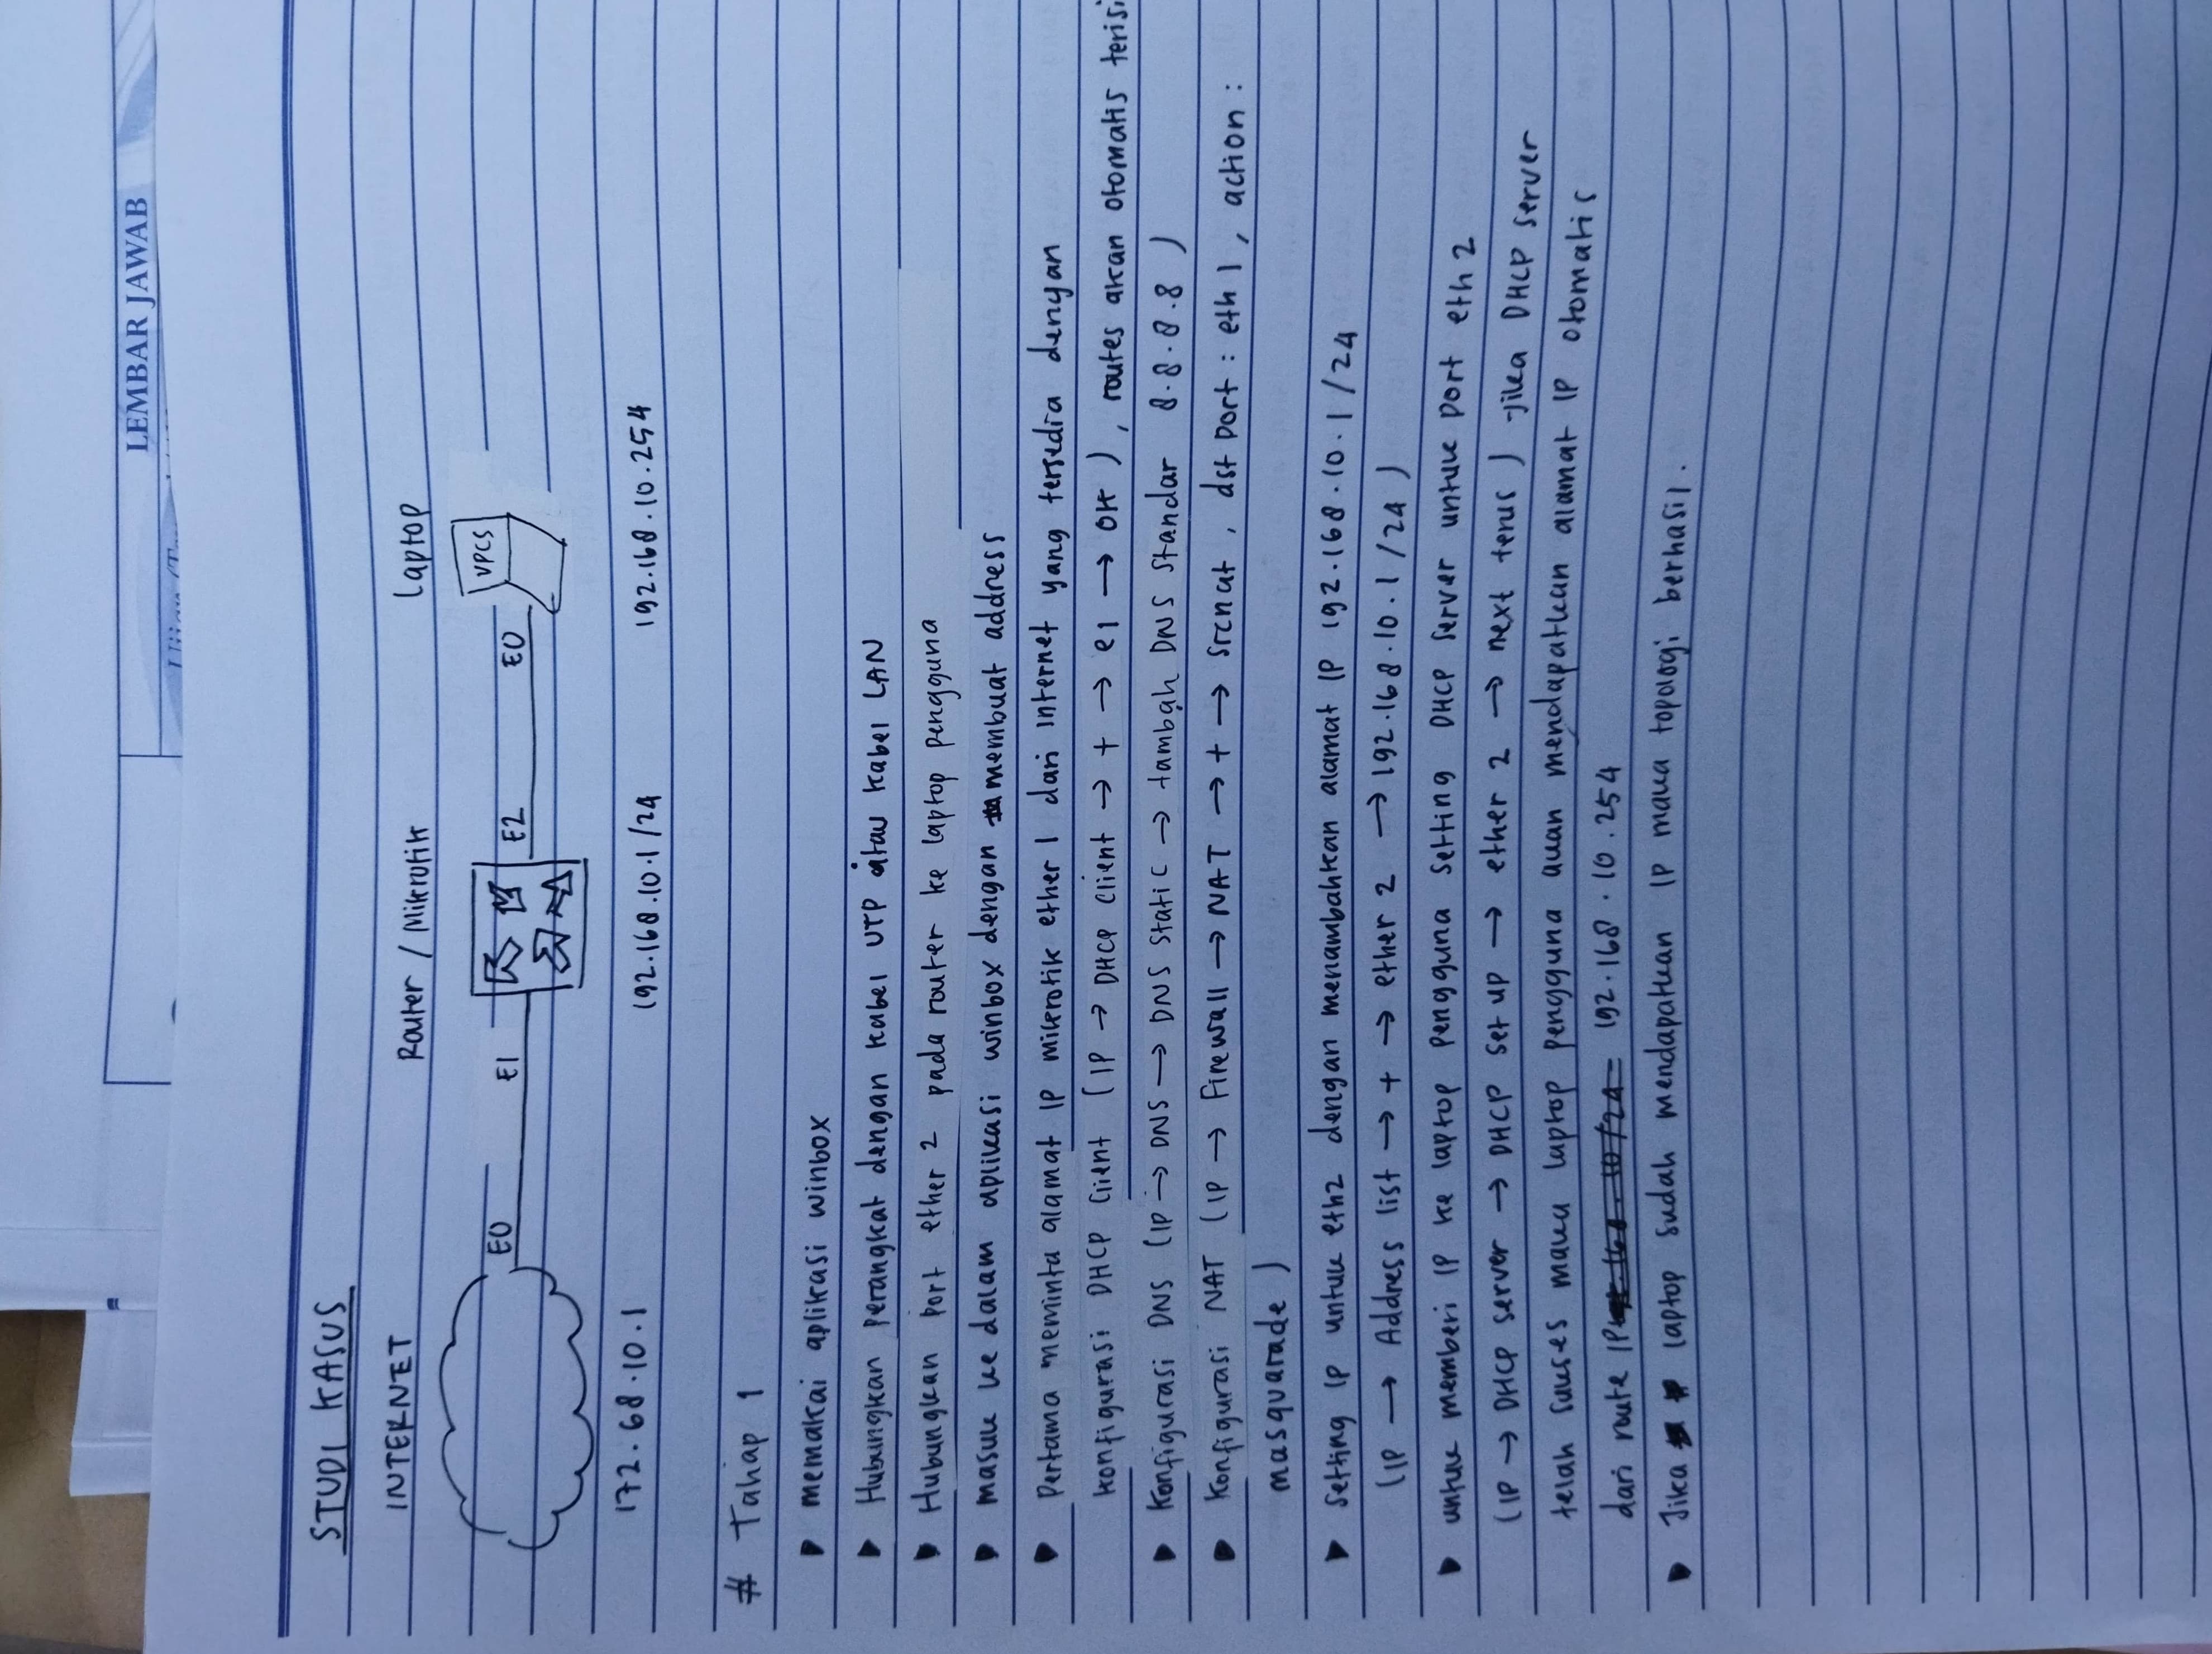 LEMBAR JAWAB
STUDI KASUS
INTERNET Router / Mikrotik Laptop
E0 E1 E2 E0 VPCS
172.68.10.1 192.168.10.1/24 192.168.10.254
# Tahap 1
▶ memakai aplikasi winbox
▶ Hubungkan perangkat dengan kabel UTP atau kabel LAN
▶ Hubungkan port ether 2 pada router ke laptop pengguna
▶ masuk ke dalam aplikasi winbox dengan membuat address
▶ Pertama meminta alamat IP mikrotik ether 1 dari internet yang tersedia dengan
konfigurasi DHCP Client (IP → DHCP Client → + → e1 → OK), routes akan otomatis terisi
▶ Konfigurasi DNS (IP → DNS → DNS Static → tambah DNS Standar 8.8.8.8)
▶ Konfigurasi NAT (IP → Firewall → NAT → + → srcnat, dst port : eth 1, action :
masquarade)
▶ Setting IP untuk eth2 dengan menambahkan alamat IP 192.168.10.1/24
(IP → Address list → + → ether 2 → 192.168.10.1/24)
▶ untuk memberi IP ke laptop pengguna setting DHCP server untuk port eth 2
(IP → DHCP server → DHCP set up → ether 2 → next terus) -jika DHCP server
telah sukses maka laptop pengguna akan mendapatkan alamat IP otomatis
dari route IP 192.168.10.254
▶ Jika laptop sudah mendapatkan IP maka topologi berhasil.